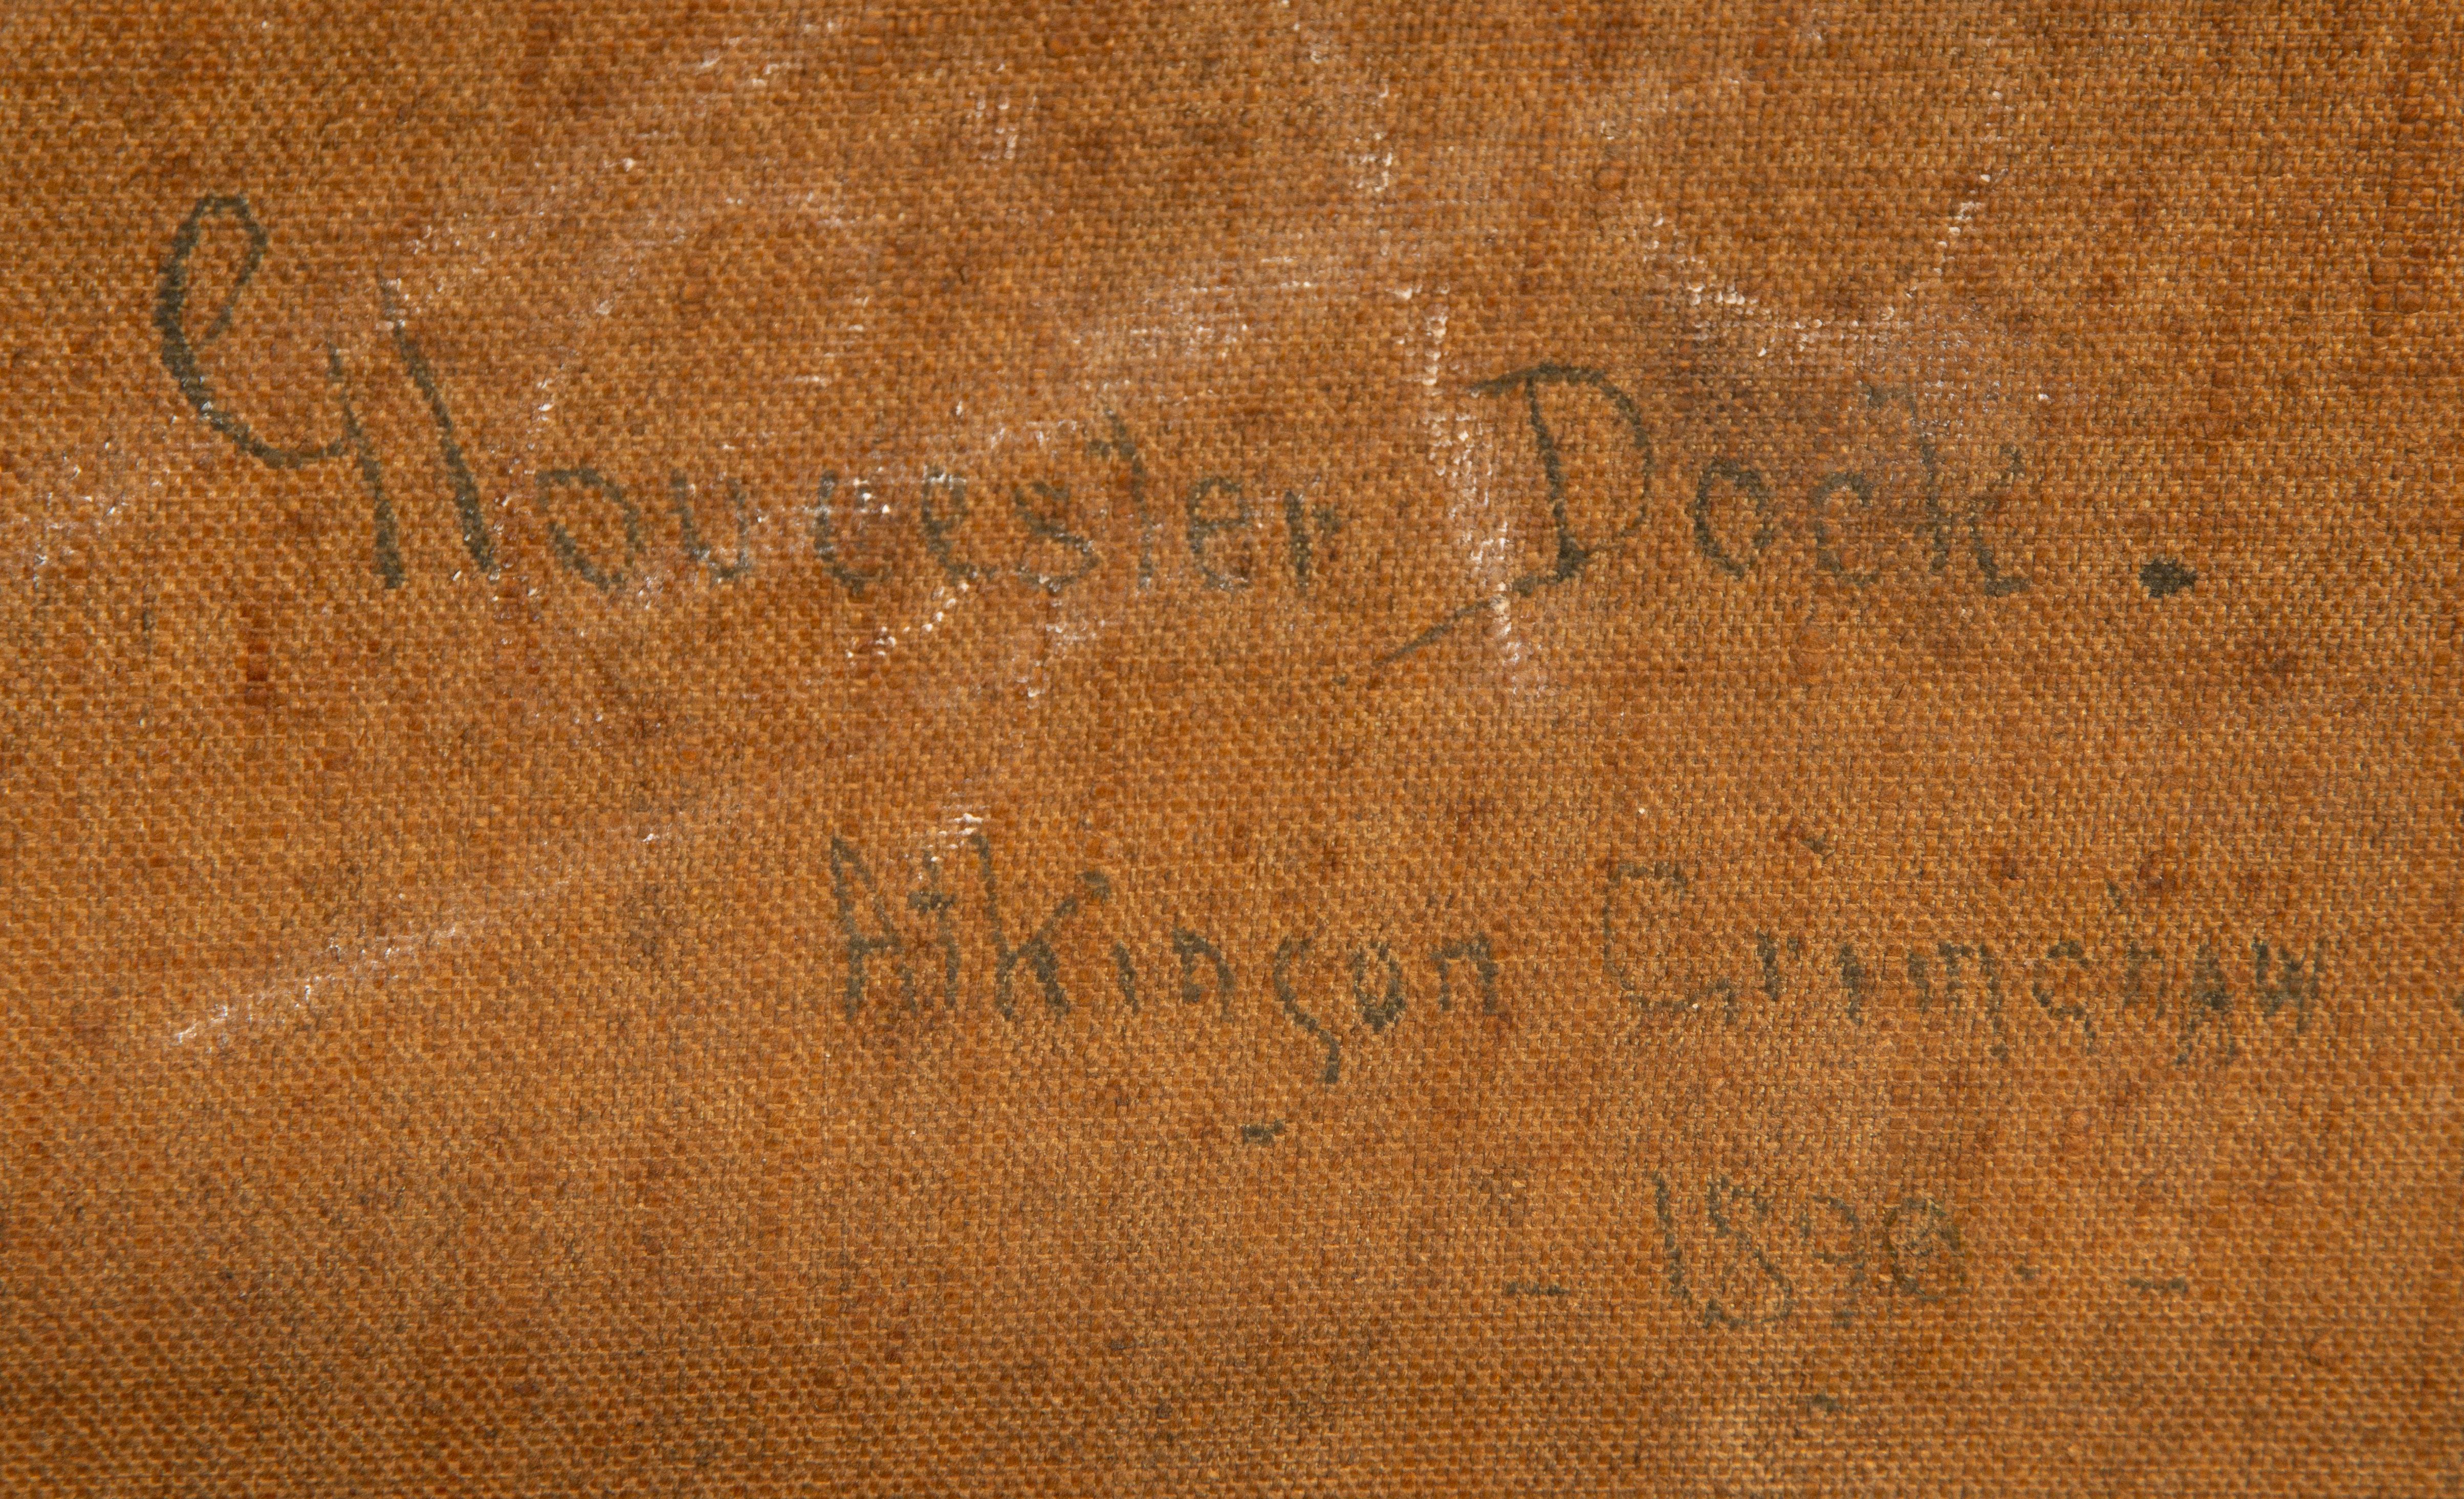 Gloucester Dock.
Atkinson Grimshaw
- 1890 -